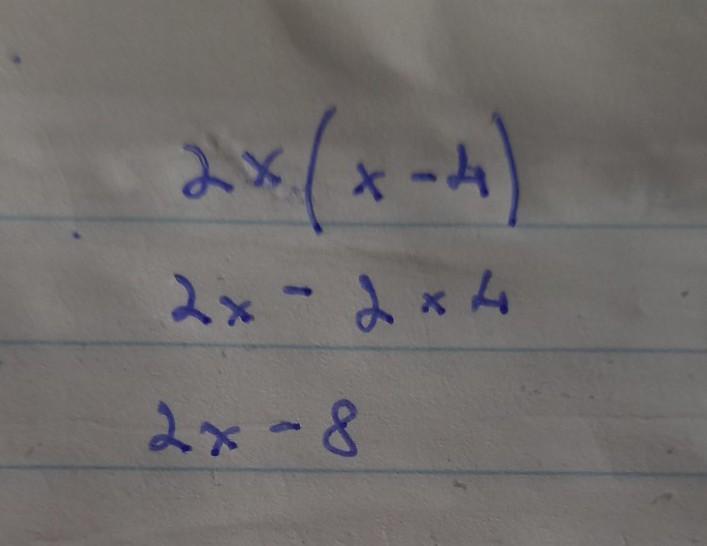 2x(x-4)
2x - 2 x 4
2x - 8